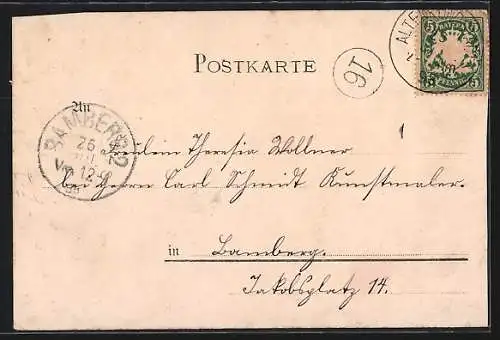 POSTKARTE
16
ALTE
5 BAYERN 5
5 PFENNIG 5
An
BAMBERG 2
26
Vm 12
1
Fräulein Theresia Wollner
bei Herrn Carl Schmidt Kunstmaler.
in Bamberg.
Jakobsplatz 14.